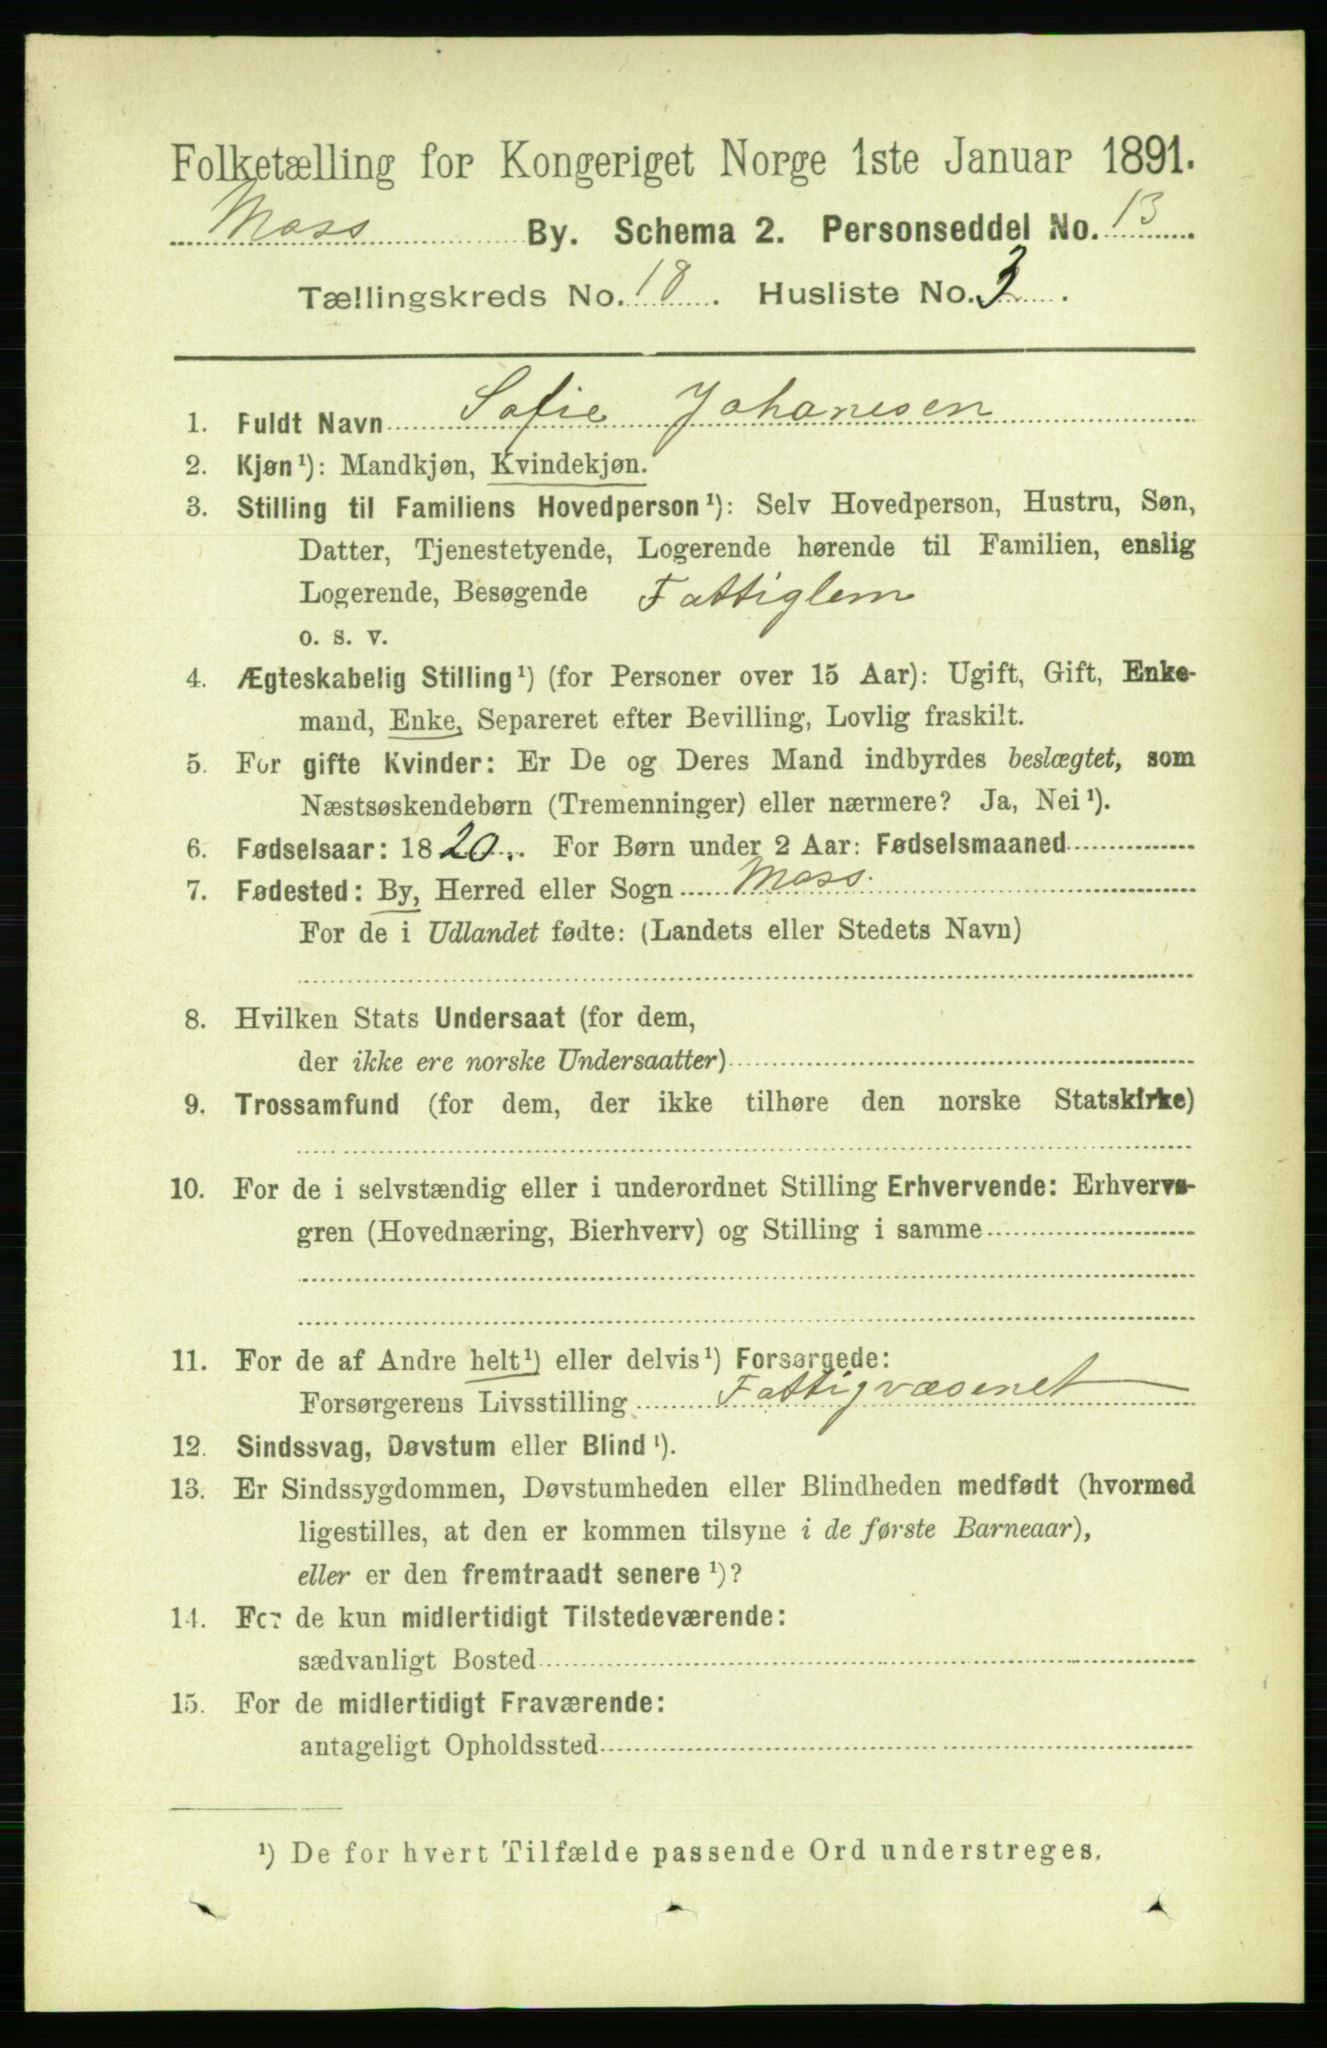 Folketælling for Kongeriget Norge 1ste Januar 1891.
Moss By. Schema 2. Personseddel No. 13
Tællingskreds No. 18. Husliste No. 3.
1. Fuldt Navn Sofie Johanesen
2. Kjøn¹): Mandkjøn, Kvindekjøn.
3. Stilling til Familiens Hovedperson¹): Selv Hovedperson, Hustru, Søn,
Datter, Tjenestetyende, Logerende hørende til Familien, enslig
Logerende, Besøgende Fattiglem
o. s. v.
4. Ægteskabelig Stilling¹) (for Personer over 15 Aar): Ugift, Gift, Enke-
mand, Enke, Separeret efter Bevilling, Lovlig fraskilt.
5. For gifte Kvinder: Er De og Deres Mand indbyrdes beslægtet, som
Næstsøskendebørn (Tremenninger) eller nærmere? Ja, Nei¹).
6. Fødselsaar: 1820. For Børn under 2 Aar: Fødselsmaaned
7. Fødested: By, Herred eller Sogn Moss.
For de i Udlandet fødte: (Landets eller Stedets Navn)
8. Hvilken Stats Undersaat (for dem,
der ikke ere norske Undersaatter)
9. Trossamfund (for dem, der ikke tilhøre den norske Statskirke)
10. For de i selvstændig eller i underordnet Stilling Erhvervende: Erhvervs-
gren (Hovednæring, Bierhverv) og Stilling i samme
11. For de af Andre helt¹) eller delvis¹) Forsørgede:
Forsørgerens Livsstilling Fattigvæsenet
12. Sindssvag, Døvstum eller Blind¹).
13. Er Sindssygdommen, Døvstumheden eller Blindheden medfødt (hvormed
ligestilles, at den er kommen tilsyne i de første Barneaar),
eller er den fremtraadt senere¹)?
14. For de kun midlertidigt Tilstedeværende:
sædvanligt Bosted
15. For de midlertidigt Fraværende:
antageligt Opholdssted
¹) De for hvert Tilfælde passende Ord understreges.